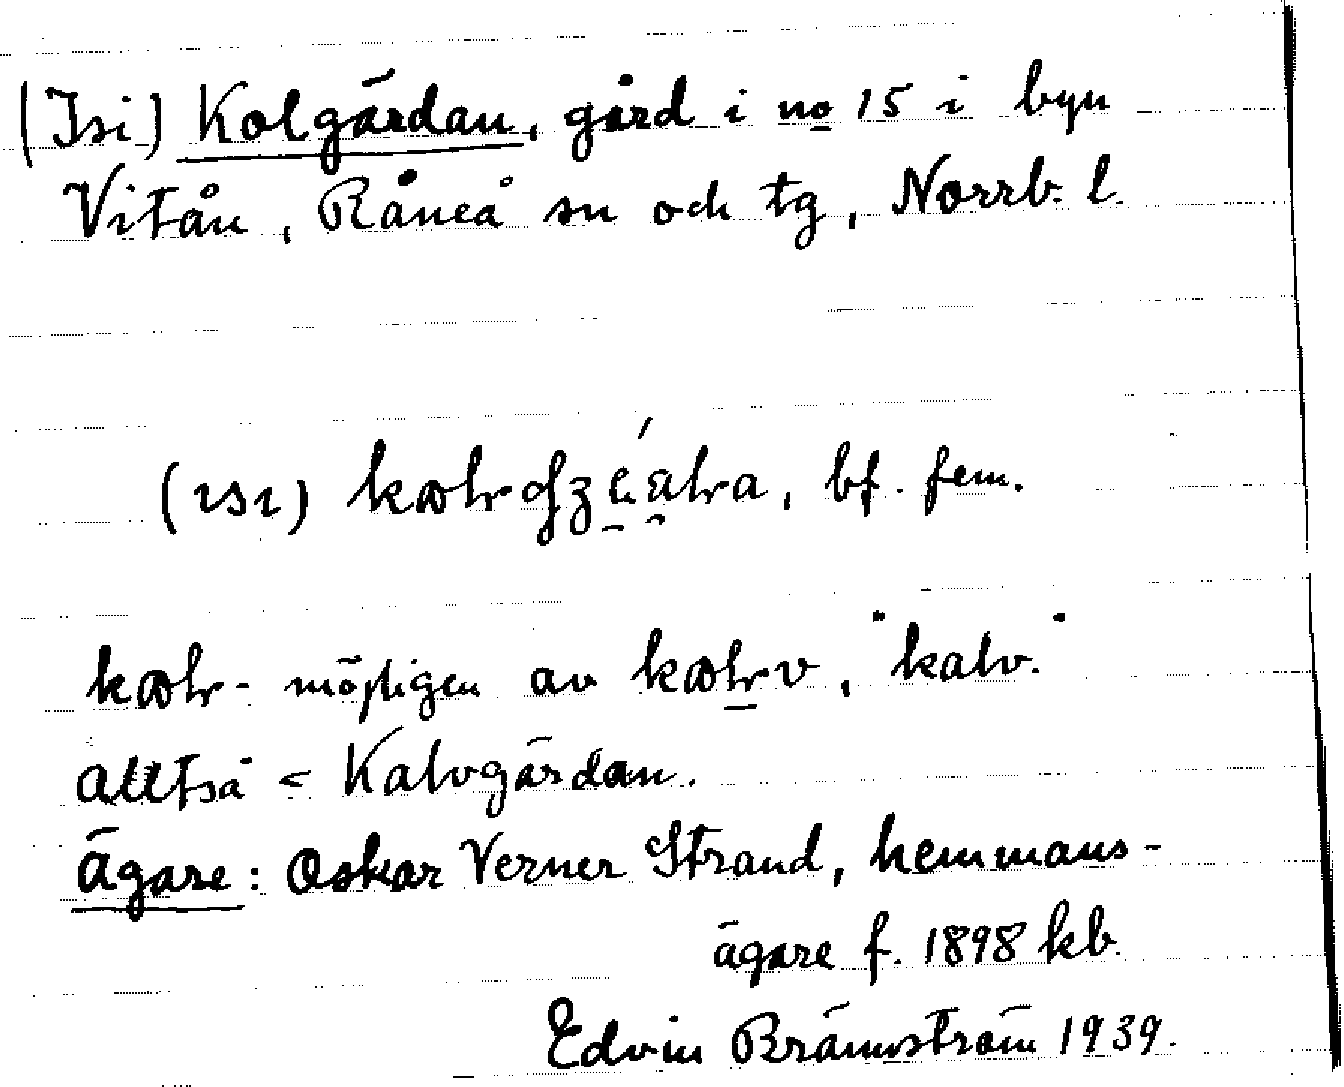 (Isi) Kolgärdan, gård i no 15 i byn
Vitån, Råneå sn och tg, Norrb. l.
(ısı) bf. fem.
möjligen av "kalv."
alltså = Kalvgärdan.
ägare: Oskar Verner Strand, hemmans-
ägare f. 1898 kb.
Edvin Brännström 1939.